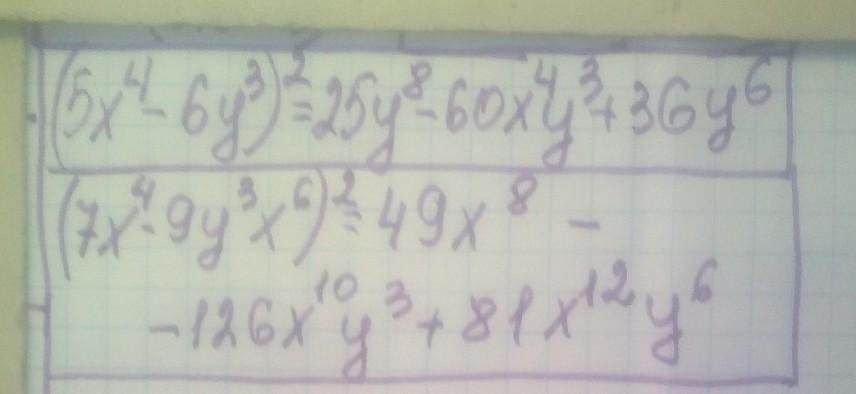 (5x⁴ - 6y³)² = 25y⁸ - 60x⁴y³ + 36y⁶
(7x⁴ - 9y³x⁶)² = 49x⁸ -
- 126x¹⁰y³ + 81x¹²y⁶